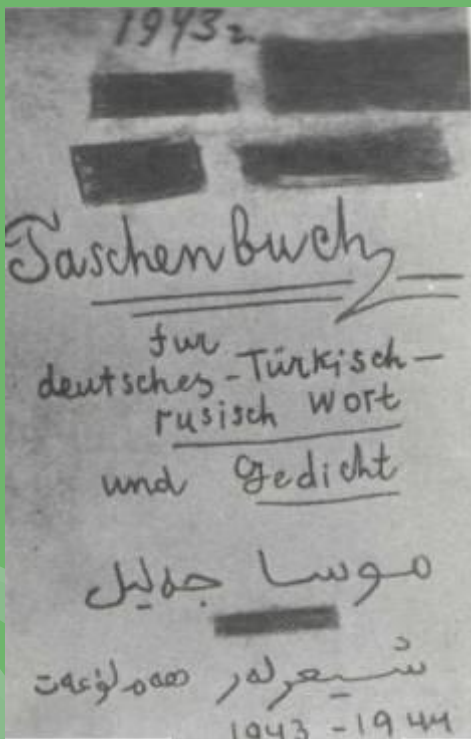 1943г.
Taschenbuch
fur
deutsches-Türkisch-
rusisch Wort
und Gedicht
موسا جەلیل
شیعرلەر ھەم لۇعەت
1943-1944